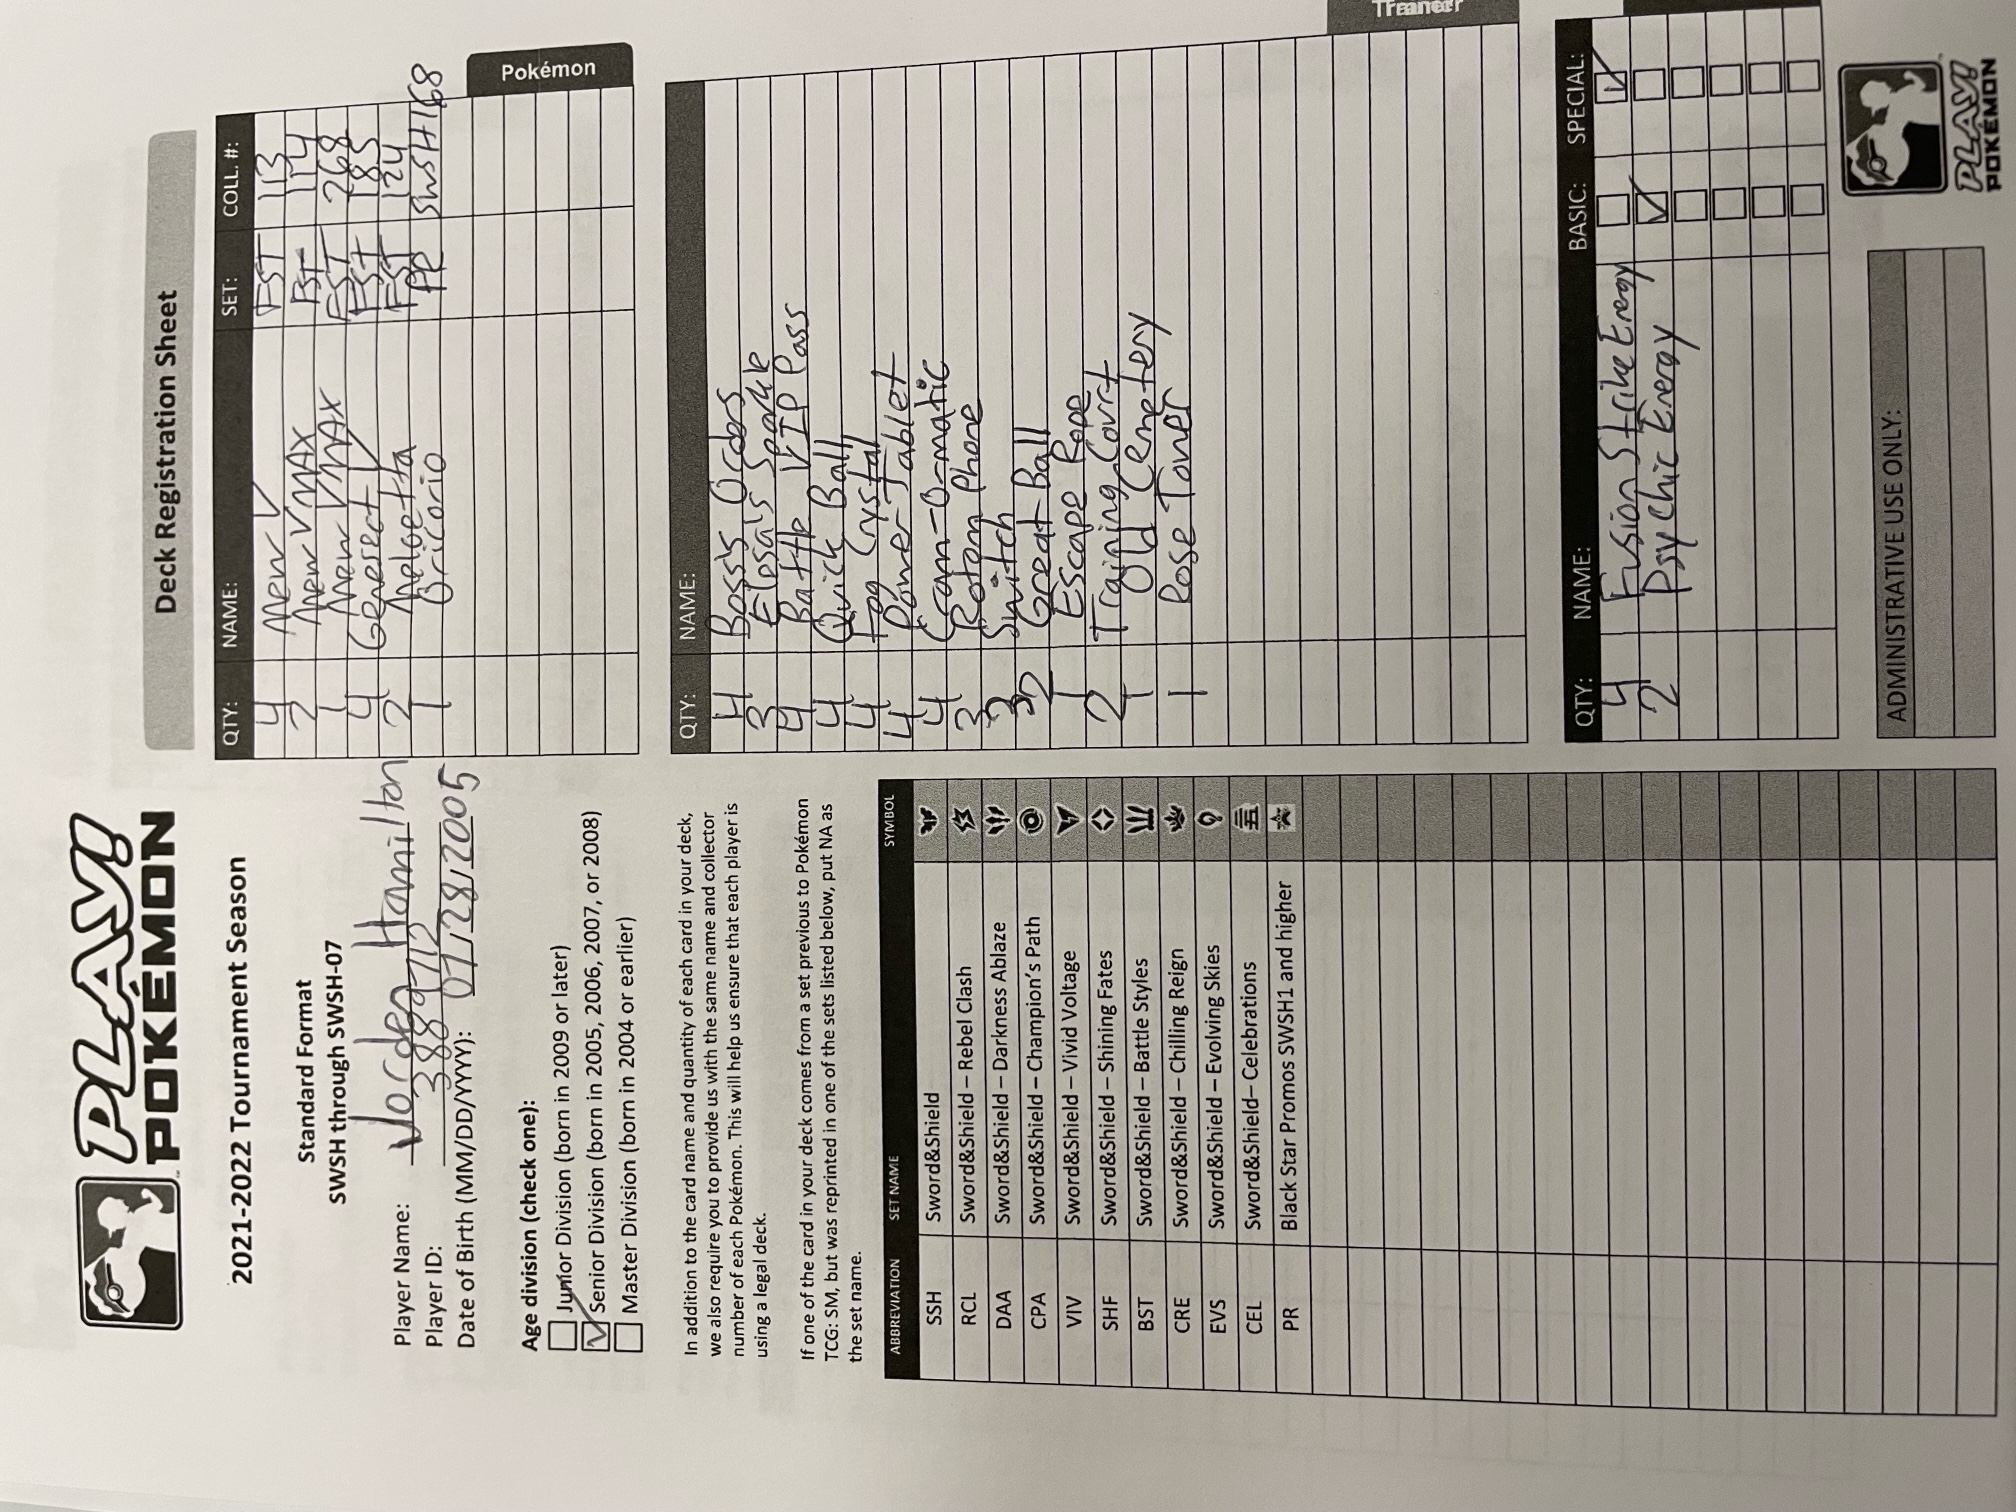 PLAY!
POKÉMON
2021-2022 Tournament Season
Standard Format
SWSH through SWSH-07
Player Name: Jorden Hamilton
Player ID: 3889712
Date of Birth (MM/DD/YYYY): 07/28/2005
Age division (check one):
Junior Division (born in 2009 or later)
Senior Division (born in 2005, 2006, 2007, or 2008)
Master Division (born in 2004 or earlier)
In addition to the card name and quantity of each card in your deck,
we also require you to provide us with the same name and collector
number of each Pokémon. This will help us ensure that each player is
using a legal deck.
If one of the card in your deck comes from a set previous to Pokémon
TCG: SM, but was reprinted in one of the sets listed below, put NA as
the set name.
ABBREVIATION SET NAME SYMBOL
SSH Sword&Shield
RCL Sword&Shield – Rebel Clash
DAA Sword&Shield – Darkness Ablaze
CPA Sword&Shield – Champion's Path
VIV Sword&Shield – Vivid Voltage
SHF Sword&Shield – Shining Fates
BST Sword&Shield – Battle Styles
CRE Sword&Shield – Chilling Reign
EVS Sword&Shield – Evolving Skies
CEL Sword&Shield– Celebrations
PR Black Star Promos SWSH1 and higher
Deck Registration Sheet
QTY: NAME: SET: COLL. #:
4 Mew V FST 113
2 Mew VMAX FST 114
1 Mew VMAX FST 268
4 Genesect V FST 185
2 Meloetta FST 124
1 Oricorio PR SWSH168
Pokémon
QTY: NAME:
4 Boss's Orders
3 Elesa's Sparkle
4 Battle VIP Pass
4 Quick Ball
4 Fog Crystal
4 Power Tablet
4 Cram-O-matic
3 Rotom Phone
3 Switch
2 Great Ball
1 Escape Rope
2 Training Court
1 Old Cemetery
1 Rose Tower
Trainer
QTY: NAME: BASIC: SPECIAL:
4 Fusion Strike Energy
2 Psychic Energy
ADMINISTRATIVE USE ONLY:
PLAY!
POKÉMON